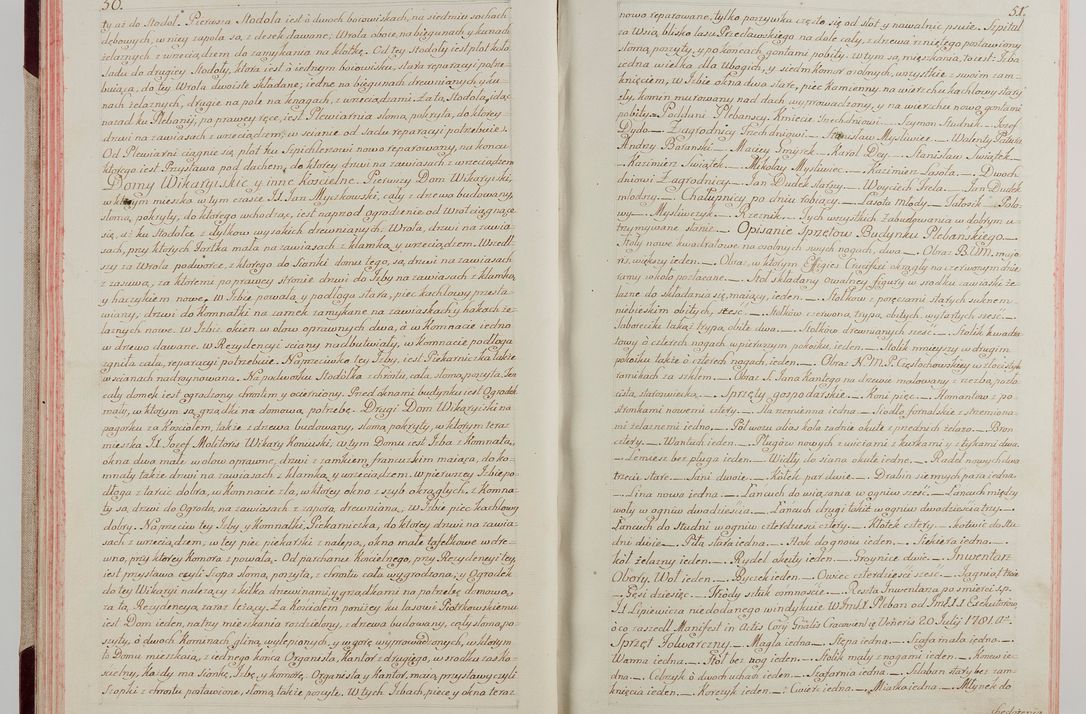 50.
ty aż do Stodoł. Pierwsza Stodoła iest ò dwoch boiowiskach, na siedmiu sochach
dębowych, w niey zapola są, z desek dawane; Wrota oboie, na biegunach, y kunach
żelaznych z wrzeciądzem do zamykania na klotkę. Od tey Stodoły iest płot koło
Sadu do drugiey Stodoły, ktora iest ò iednym boiowisku, stara reparacyi potrze-
buiąca, do tey Wrota dwoiste składane; iedne na biegunach drewnianych, y ku-
nach żelaznych, drugie na pole na knagach, z wrzeciądzami. Za tą Stodołą, idąc
nazad ku Plebanij, po prawey ręce, iest Plewiarnia słomą pokryta, do ktorey
drzwi na zawiasach z wrzeciądzem; w ścianie od Sadu reparacyi potrzebuie.
Od Plewiarni ciągnie się płot ku Szpichlerzowi nowo reparowany, na koncu
ktorego iest Przystawa pod dachem, do ktorey drzwi na zawiasach z wrzeciądzem
Domy Wikaryiskie, y inne Kościelne. Pierwszy Dom Wikaryiski,
w ktorym mieszka w tym czasie Jł. Jan Myczkowski, cały z drzewa budowany,
słomą pokryty, do ktorego wchodząc, iest naprzod ogrodzenie od Wrot ciągnące
się, aż ku Stodołce z dylkow wysokich drewnianych. Wrota, drzwi na zawia-
sach, przy ktorych Fortka mała na zawiasach z klamką, y wrzeciądzem. Wszedł-
szy za Wrota podworce, z ktorego do Sionki domu tego, są, drzwi na zawiasach
z zasuwą, za ktoremi po prawey stronie drzwi do Izby na zawiasach z klamką,
y haczykiem nowe. W Izbie powała, y podłoga stara, piec kachlowy przesta-
wiany, drzwi do Komnatki na zamek zamykane na zawiaskach y hakach że-
laznych nowe. W Izbie okien w ołow oprawnych dwa, à w Komnacie iedno
w drzewo dawane. W Rezydencyi ściany nadbutwiały, w Komnacie podłoga
zgniła cała, reparacyi potrzebuie. Naprzeciwko tey Izby, iest Piekarniczka także
w ścianach nadrujnowana. Na podworku Stodołka z chrostu, cała, słomą poszyta. Ten
cały domek iest ogrodzony chrostem y ocierniony. Przed oknami budynku iest Ogrodek
mały, w ktorym są grządki na domową potrzebę. Drugi Dom Wikaryiski na
pagorku za Kościołem, także z drzewa budowany, słomą pokryty, w ktorym teraz
mieszka Jł. Jozef Molitoris Wikary Koniuski, w tym Domu iest Izba z Komnatą,
okna dwa małe w ołow oprawne, drzwi z zamkiem francuskim maiąca, do ko-
mnaty także drzwi na zawiasach z klamką y wrzeciądzem. W pierwszey Izbie po-
dłoga z tarcic dobra, w Komnacie zła, w ktorey okno z szyb okrągłych, z Komna-
ty są, drzwi do Ogroda, na zawiasach z zaporą drewnianą. W Izbie piec kachlowy
dobry. Naprzeciw tey Izby, y Komnatki, Piekarniczka, do ktorey drzwi na zawia-
sach z wrzeciądzem, w tey piec piekarski z nalepą, okno małe tafelkowe w dre-
wno, przy ktorey Komora z powałą. Od parchanu Kościelnego, przy Rezydencyi tey,
iest przystawa czyli Szopa słomą, poszyta, z chrostu cała wygrodzona, y Ogrodek
do tey Wikaryi należący z kilką drzewinami, y grządkami na potrzebę domową,
za tą Rezydencyą zaraz leżący. Za Kościołem poniżey ku lasowi Piotrkowskiemu
iest Dom ieden, na trzy mieszkania rozdzielony, z drzewa budowany, cały słomą po-
szyty, ò dwoch Kominach, gliną wylepionych, y w gorę wyprowadzonych, w ktorym
to Domu mieszkaią, z iednego końca Organista, Kantor z drugiego, w środku zaś Ko-
ścielny, każdy ma Sionkę, Izbę, y komorę. Organista y Kantor, maią przystawy, czyli
Szopki z chrostu postawione, słomą także poszyte. W tych Izbach, piece y okna teraz
51.
nowo reparowane, tylko poszywka częścią się od słot y nawalnic psuie. Szpital
za Wsią, blisko lasu Przecławskiego na dole cały, z drzewa rzniętego postawiony
słomą poszyty, y po końcach gontami pobity. W tym są, mieszkania, to iest: Izba
iedna wielka dla Ubogich, y siedm Komor osobnych, wszystkie z swoim zam-
knięciem, w Izbie okna dwa stare, piec kamienny na wierzchu kachlowy stary
zły, komin murowany nad dach wyprowadzony, y na wierzchu nowo, gontami
pobity. — Poddani Plebanscy. Kmiecie Trzechdniowi — Szymon Studnik — Jozef
Dyda — Zagrodnicy Trzechdniowi — Stanisław Mysliwiec — Walenty Palusa
Andrzy Baranski — Maciey Gmyrek — Karol Dey — Stanisław Swiątek —
— Kazimierz Swiątek — Mikołay Mysliwiec — Kazimierz Lasota — Dwoch-
dniowi Zagrodnicy. — Jan Dudek stary — Woyciech Srela — Jan Dudek
młodszy. — Chałupnicy po dniu robiący — Lasota Młody — Jałosik — Polo-
wy — Mysliwczyk — Rzeznik — Tych wszystkich zabudowania w dobrym u-
trzymywane stanie. — Opisanie Sprzętow Budynku Plebańskiego. —
Stoły nowe kwadratowe na osobnych swych nogach, dwa — Obraz B.V.M. majo-
ris, większy ieden. — Obraz, w ktorym Effigies Crucifixi okrągły na czerwonym dnie,
ramy wkoło pozłacane. — Stoł składany Owalney figury w środku zawiaski że-
lazne do składania się maiący, ieden. — Stołkow z poręczami starych suknem
niebieskim obitych, sześć. — Stołkow czerwoną trypą obitych wytartych sześć. —
Taboreciki takąż trypą obite dwa. — Stołkow drewnianych sześć. — Stolik kwadra-
towy ò czterech nogach w pierwszym pokoiku, ieden. — Stolik mnieyszy w drugim
pokoiku także ò czterech nogach, ieden. — Obraz N.M.P. Częstochowskiey w złocistych
ramkach za szkłem. — Obraz S. Jana Kantego na drzewie malowany z rzezbą pozło-
cistą, staroswiecką. — Sprzęty gospodarskie. — Koni piec. — Homontow z po-
stronkami nowemi cztery. — Sla niemienna iedna. — Siodło fornalskie z strzemiona-
mi żelaznemi iedno. — Połwozu alias koła zadnie okute z przednich żelazo. — Bron
cztery. — Wantuch ieden. — Pługow nowych z wiciami z kurkami y z stykami dwa.
— Lemiesz bez pługa ieden. — Widły do siana okute iedne. — Radeł nowych dwa
trzecie stare. — Sani dwoie. — Kołek par dwie. — Drabin siennych para iedna
— Lina nowa iedna. — Łancuch do wiązania w ogniw sześć. — Łancuch między
woły w ogniw dwadzieścia. — Łancuch drugi takiż w ogniw dwadzieścia trzy. —
Łancuch do Studni w ogniw czterdzieści cztery. — Kłotek cztery. — Kotwic do Stu-
dni dwie. — Piła stara iedna. — Hak do gnoiu ieden. — Siekiera iedna. —
Koł żelazny ieden. — Rydel okuty ieden. — Grzywce dwie. — Inwentarz
Obory. Woł ieden. — Byczek ieden. — Owiec czterdzieści sześć. — Jagniąt trzie
— Gęsi dziesięć. — Trzody sztuk osmnoście. — Reszta Inwentarza po smierci s.p.
Jł. Lipiewicza niedodanego windykuie W Jmć X. Pleban od Jmć JJ. Exekutorow,
ò co zaszedł Manifest in Actis Cons. Gnalis Cracovien. Die Veneris 20 Julij 1781. Aº.
Sprzęt Folwarczny. — Magla iedna. — Stępa iedna. — Szafa mała iedna. —
Wanna iedna. — Stoł bez nog ieden. — Stolik mały z nogami ieden. — Konew ie-
dna. — Cebrzyk ò dwoch uchach ieden. — Szafarnia iedna. — Szlaban stary bez zam-
knięcia ieden. — Korczyk ieden. — Cwierć iedna. — Miarka iedna. — Młynek do
chędożenia